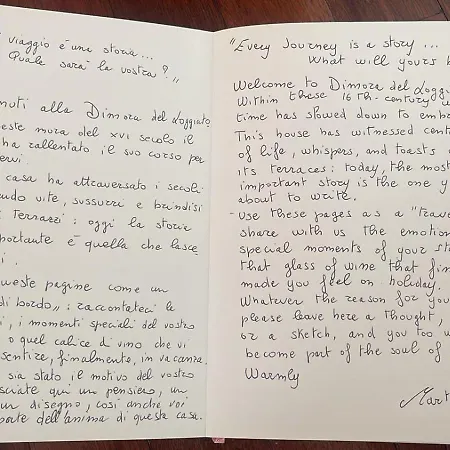 viaggio è una storia...
Quale sarà la vostra?"
nuti alla Dimora del Loggiato
este mura del XVI secolo il
ha rallentato il suo corso per
ervi.
casa ha attraversato i secoli
ndo vite, sussurri e brindisi
i terrazzi: oggi la storia
mportante è quella che lasce
i.
ueste pagine come un
di bordo": raccontateci le
i, i momenti speciali del vostro
o quel calice di vino che vi
sentire, finalmente, in vacanza.
sia stato il motivo del vostro
sciate qui un pensiero, un
un disegno, così anche voi
parte dell'anima di questa casa.
"Every Journey is a story...
What will yours b
Welcome to Dimora del Loggi
Within these 16th-century w
time has slowed down to emb
This house has witnessed cent
of life, whispers, and toasts
its terraces: today, the most
important story is the one y
about to write.
- Use these pages as a "trave
share with us the emotion
special moments of your st
that glass of wine that fin
made you feel on holiday.
Whatever the reason for you
please leave here a thought,
or a sketch, and you too w
become part of the soul of
Warmly
Mart